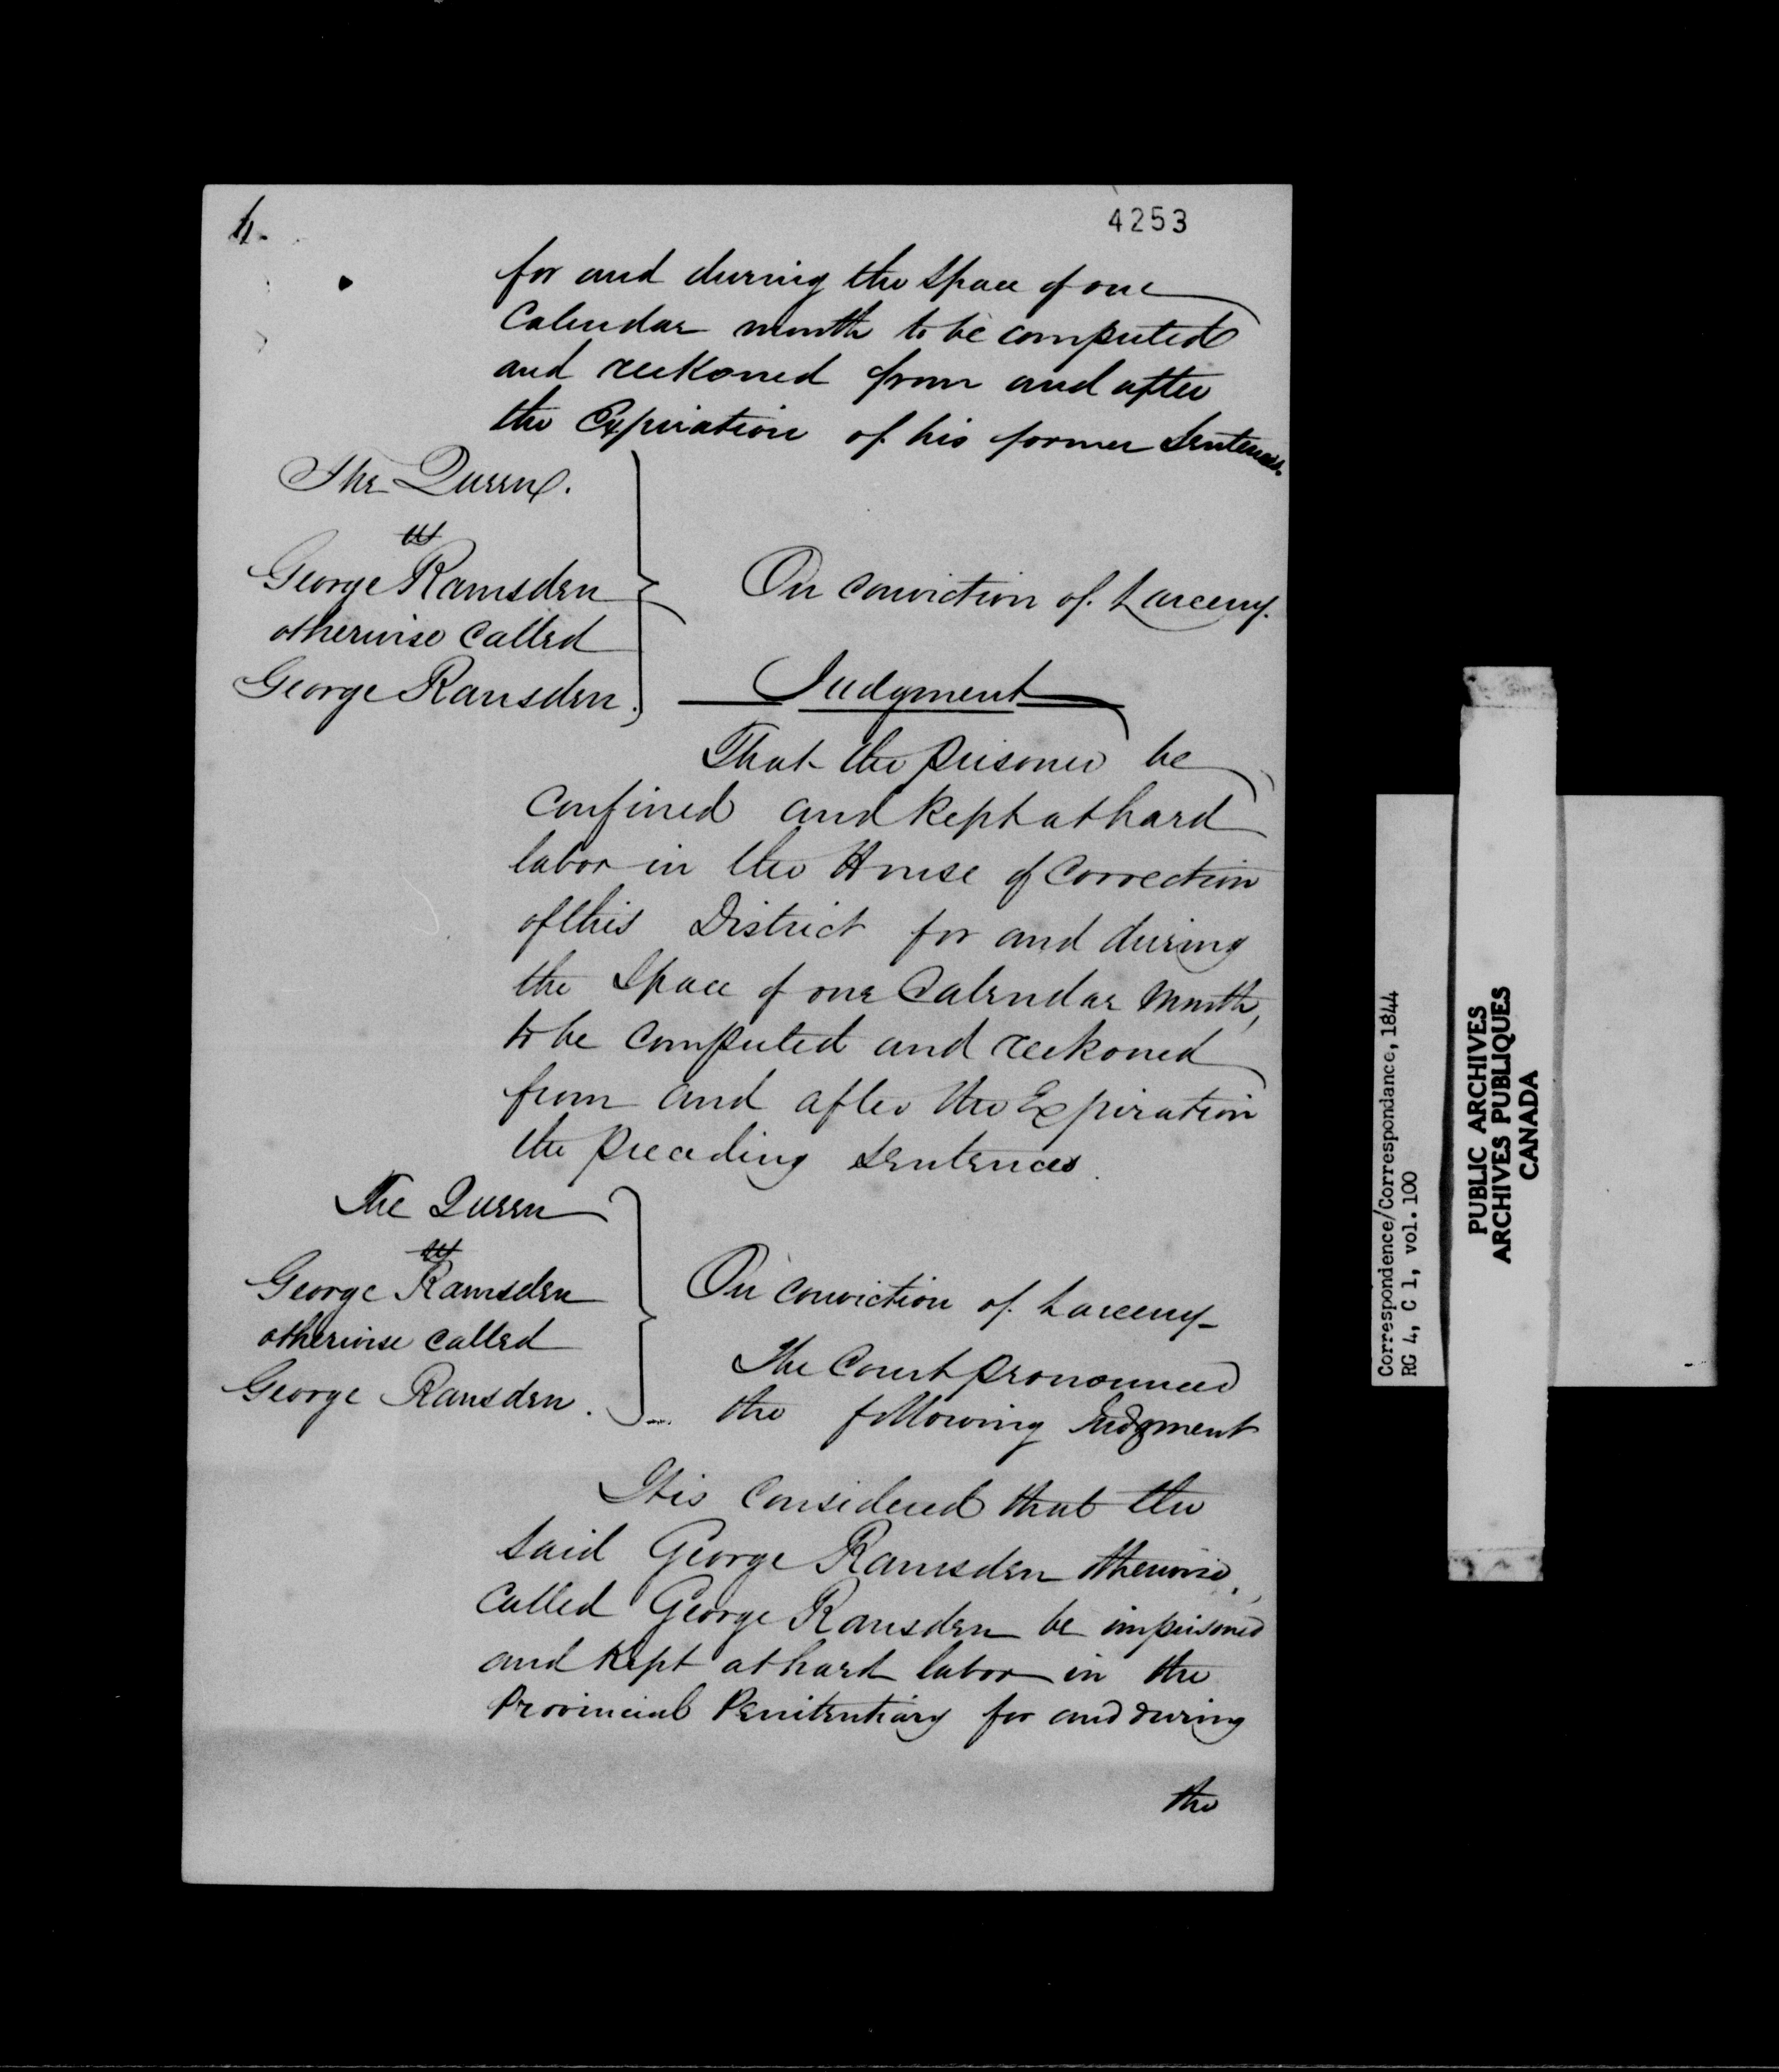 4.
4253
for and during the Space of one
Calendar month to be computed
and reckoned from and after
the Expiration of his former Sentences.
The Queen.
vs
George Ramsden
otherwise called
George Ransden.
On conviction of Larceny.
Judgment
That the prisoner be
confined and kept at hard
labor in the House of Correction
of this District for and during
the Space of one Calendar Month,
to be computed and reckoned
from and after the Expiration
the preceding sentences.
The Queen
vs
George Ramsden
otherwise called
George Ransden.
On conviction of Larceny
The Court pronounced
the following Judgment
It is considered that the
said George Ramsden otherwise
called George Ransden be imprisoned
and kept at hard labor in the
Provincial Penitentiary for and during
the
Correspondence/Correspondance, 1844
RG 4, C 1, vol. 100
PUBLIC ARCHIVES
ARCHIVES PUBLIQUES
CANADA